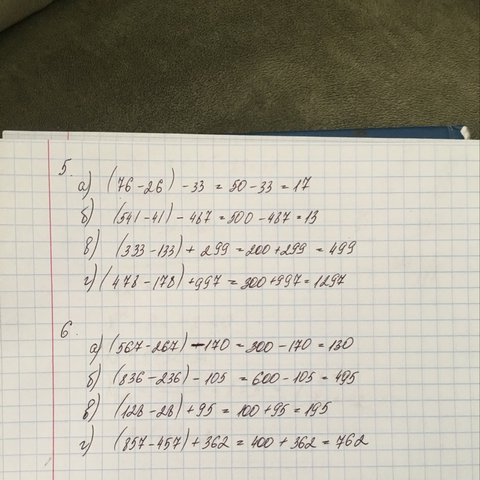 5.
а) (76 - 26) - 33 = 50 - 33 = 17
б) (541 - 41) - 487 = 500 - 487 = 13
в) (333 - 133) + 299 = 200 + 299 = 499
г) (478 - 178) + 997 = 300 + 997 = 1297
6.
а) (567 - 267) - 170 = 300 - 170 = 130
б) (836 - 236) - 105 = 600 - 105 = 495
в) (128 - 28) + 95 = 100 + 95 = 195
г) (857 - 457) + 362 = 400 + 362 = 762